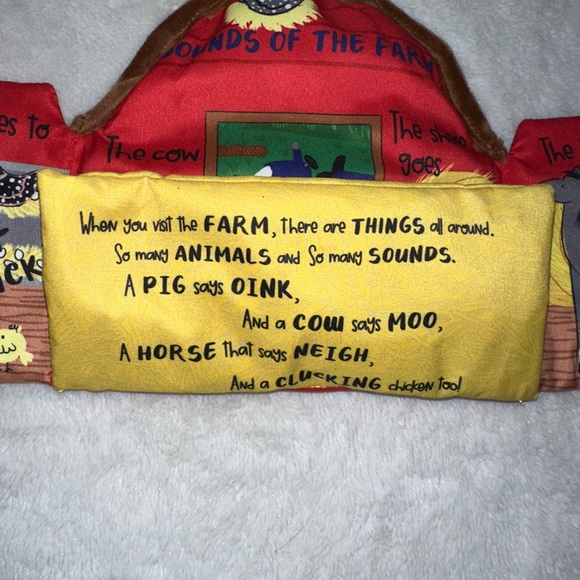 SOUNDS OF THE FARM
es to
The cow
The sheep
goes
The
When you visit the FARM, there are THINGS all around.
So many ANIMALS and So many SOUNDS.
A PIG says OINK,
And a COW says MOO,
A HORSE that says NEIGH,
And a CLUCKING chicken too!